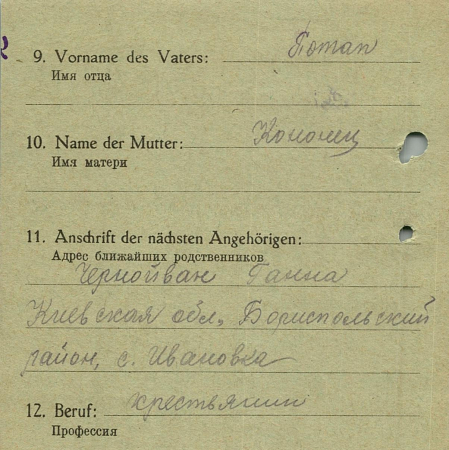 9. Vorname des Vaters: Потап
Имя отца
10. Name der Mutter: Кононец
Имя матери
11. Anschrift der nächsten Angehörigen:
Адрес ближайших родственников
Чернойван Ганна
Киевская обл., Бориспольский
район, с. Ивановка
12. Beruf: хрестьянин
Профессия